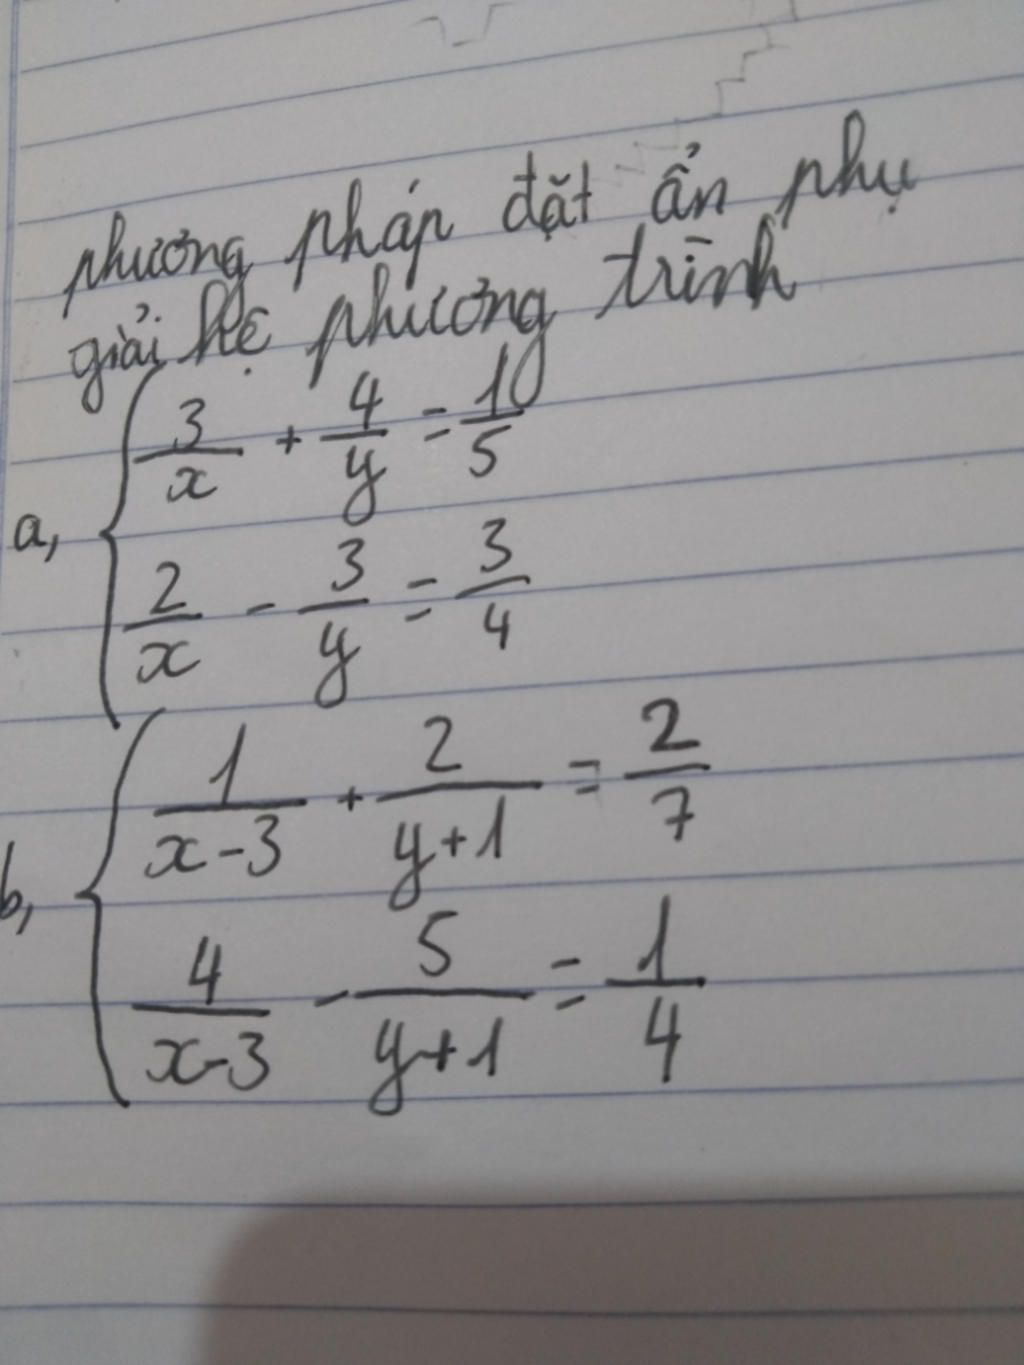 phương pháp đặt ẩn phụ
giải hệ phương trình
a, { 3/x + 4/y = 1/5
2/x - 3/y = 3/4
b, { 1/x-3 + 2/y+1 = 2/7
4/x-3 - 5/y+1 = 1/4